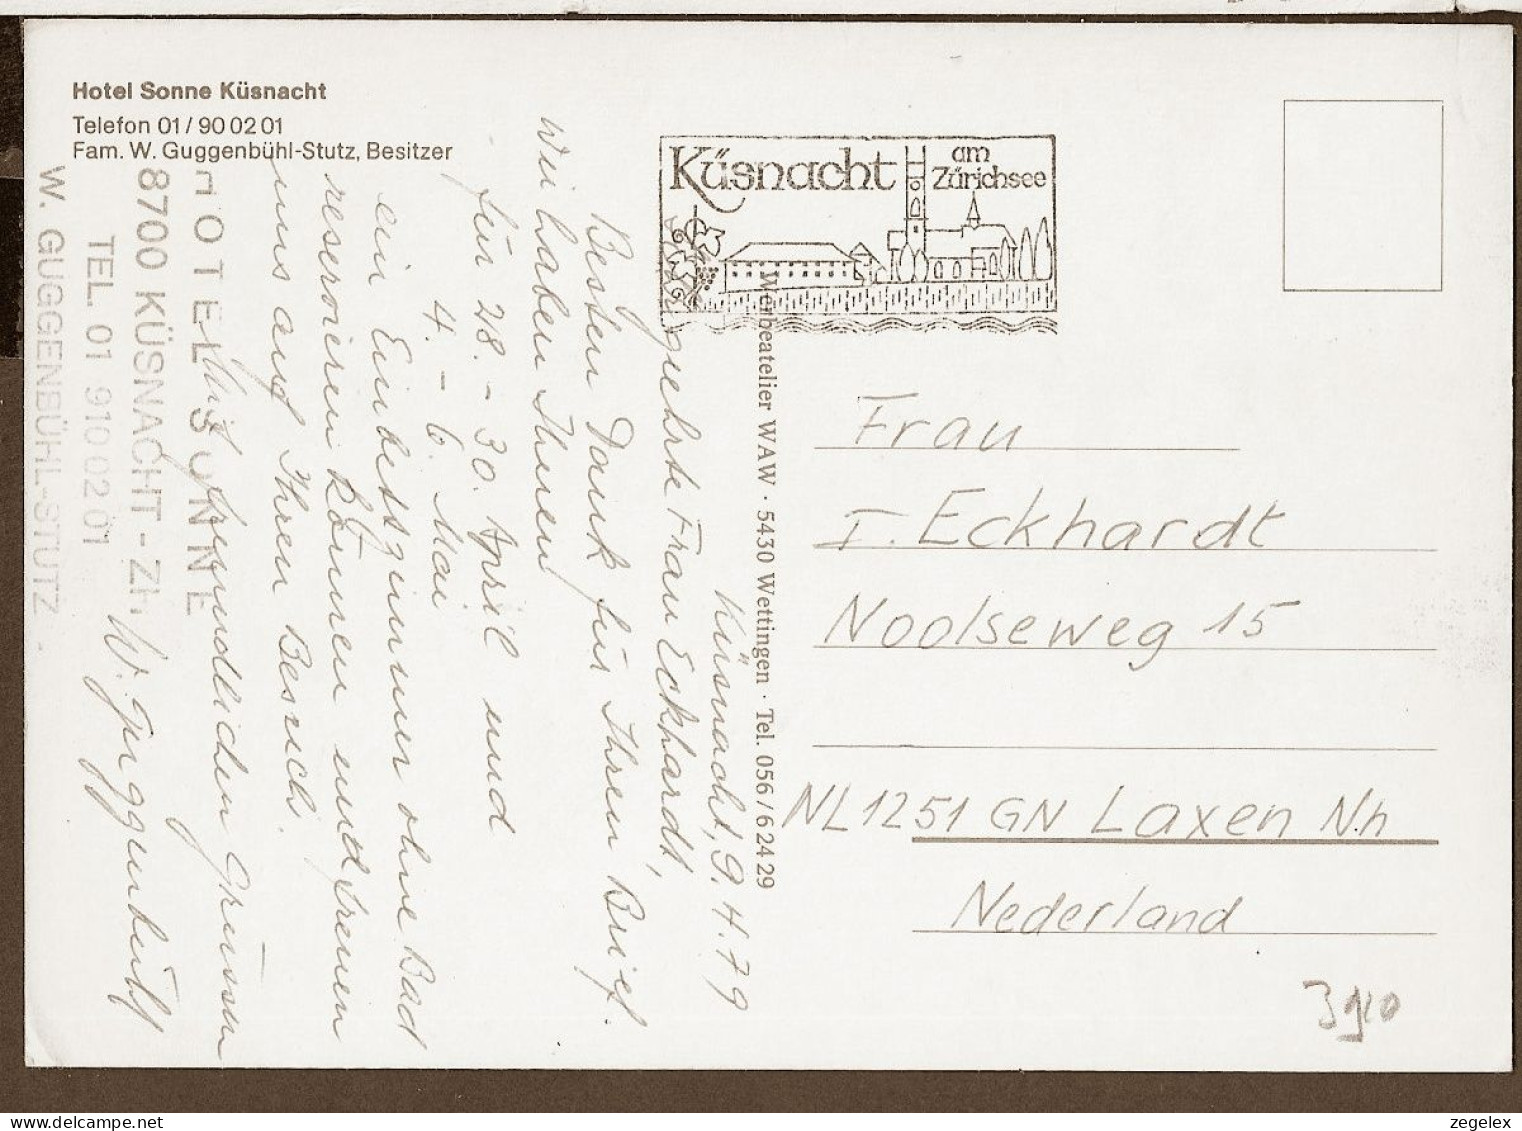 Hotel Sonne Küsnacht
Telefon 01/90 02 01
Fam. W. Guggenbühl-Stutz, Besitzer
HOTEL SONNE
8700 KÜSNACHT - ZH
TEL. 01 910 02 01
W. GUGGENBÜHL-STUTZ
Küsnacht, 9.4.79
geehrte Frau Eckhardt,
Besten Dank für Ihren Brief.
Wir haben Ihnen
für 28. - 30. April und
4. - 6. Mai
ein Einbettzimmer ohne Bad
reservieren können und freuen
uns auf Ihren Besuch.
Mit freundlichen Grüssen
W. Guggenbühl
Küsnacht am
Zürichsee
Werbeatelier WAW · 5430 Wettingen · Tel. 056/6 24 29
Frau
I. Eckhardt
Noolseweg 15
NL 1251 GN Laxen N.h
Nederland
zegelex